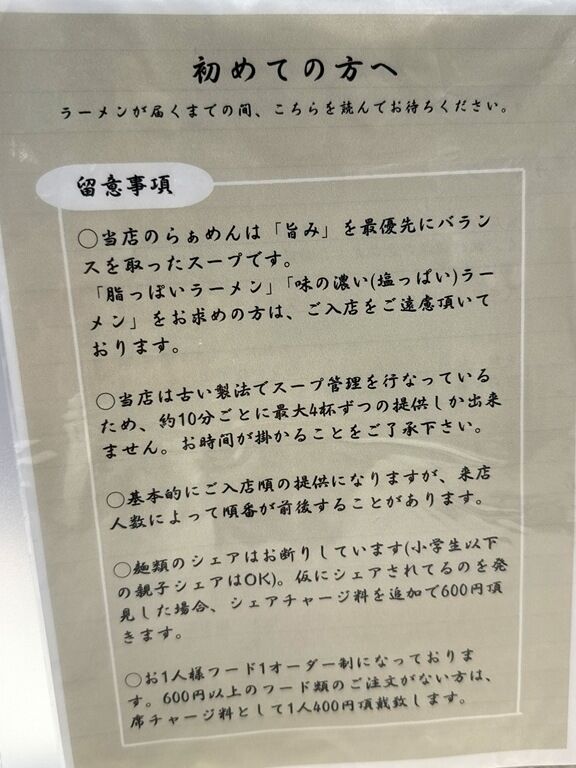 初めての方へ
ラーメンが届くまでの間、こちらを読んでお待ちください。
留意事項
〇当店のらぁめんは「旨み」を最優先にバラン
スを取ったスープです。
「脂っぽいラーメン」「味の濃い(塩っぱい)ラー
メン」をお求めの方は、ご入店をご遠慮頂いて
おります。
〇当店は古い製法でスープ管理を行なっている
ため、約10分ごとに最大4杯ずつの提供しか出来
ません。お時間が掛かることをご了承下さい。
〇基本的にご入店順の提供になりますが、来店
人数によって順番が前後することがあります。
〇麺類のシェアはお断りしています(小学生以下
の親子シェアはOK)。仮にシェアされてるのを発
見した場合、シェアチャージ料を追加で600円頂
きます。
〇お1人様フード1オーダー制になっておりま
す。600円以上のフード類のご注文がない方は、
席チャージ料として1人400円頂戴致します。